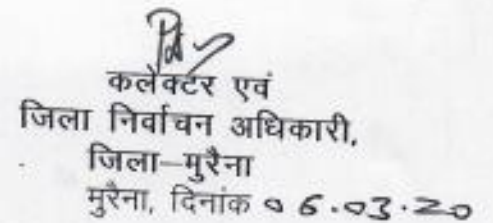 कलेक्टर एवं
जिला निर्वाचन अधिकारी,
जिला–मुरैना
मुरैना, दिनांक 06.03.20